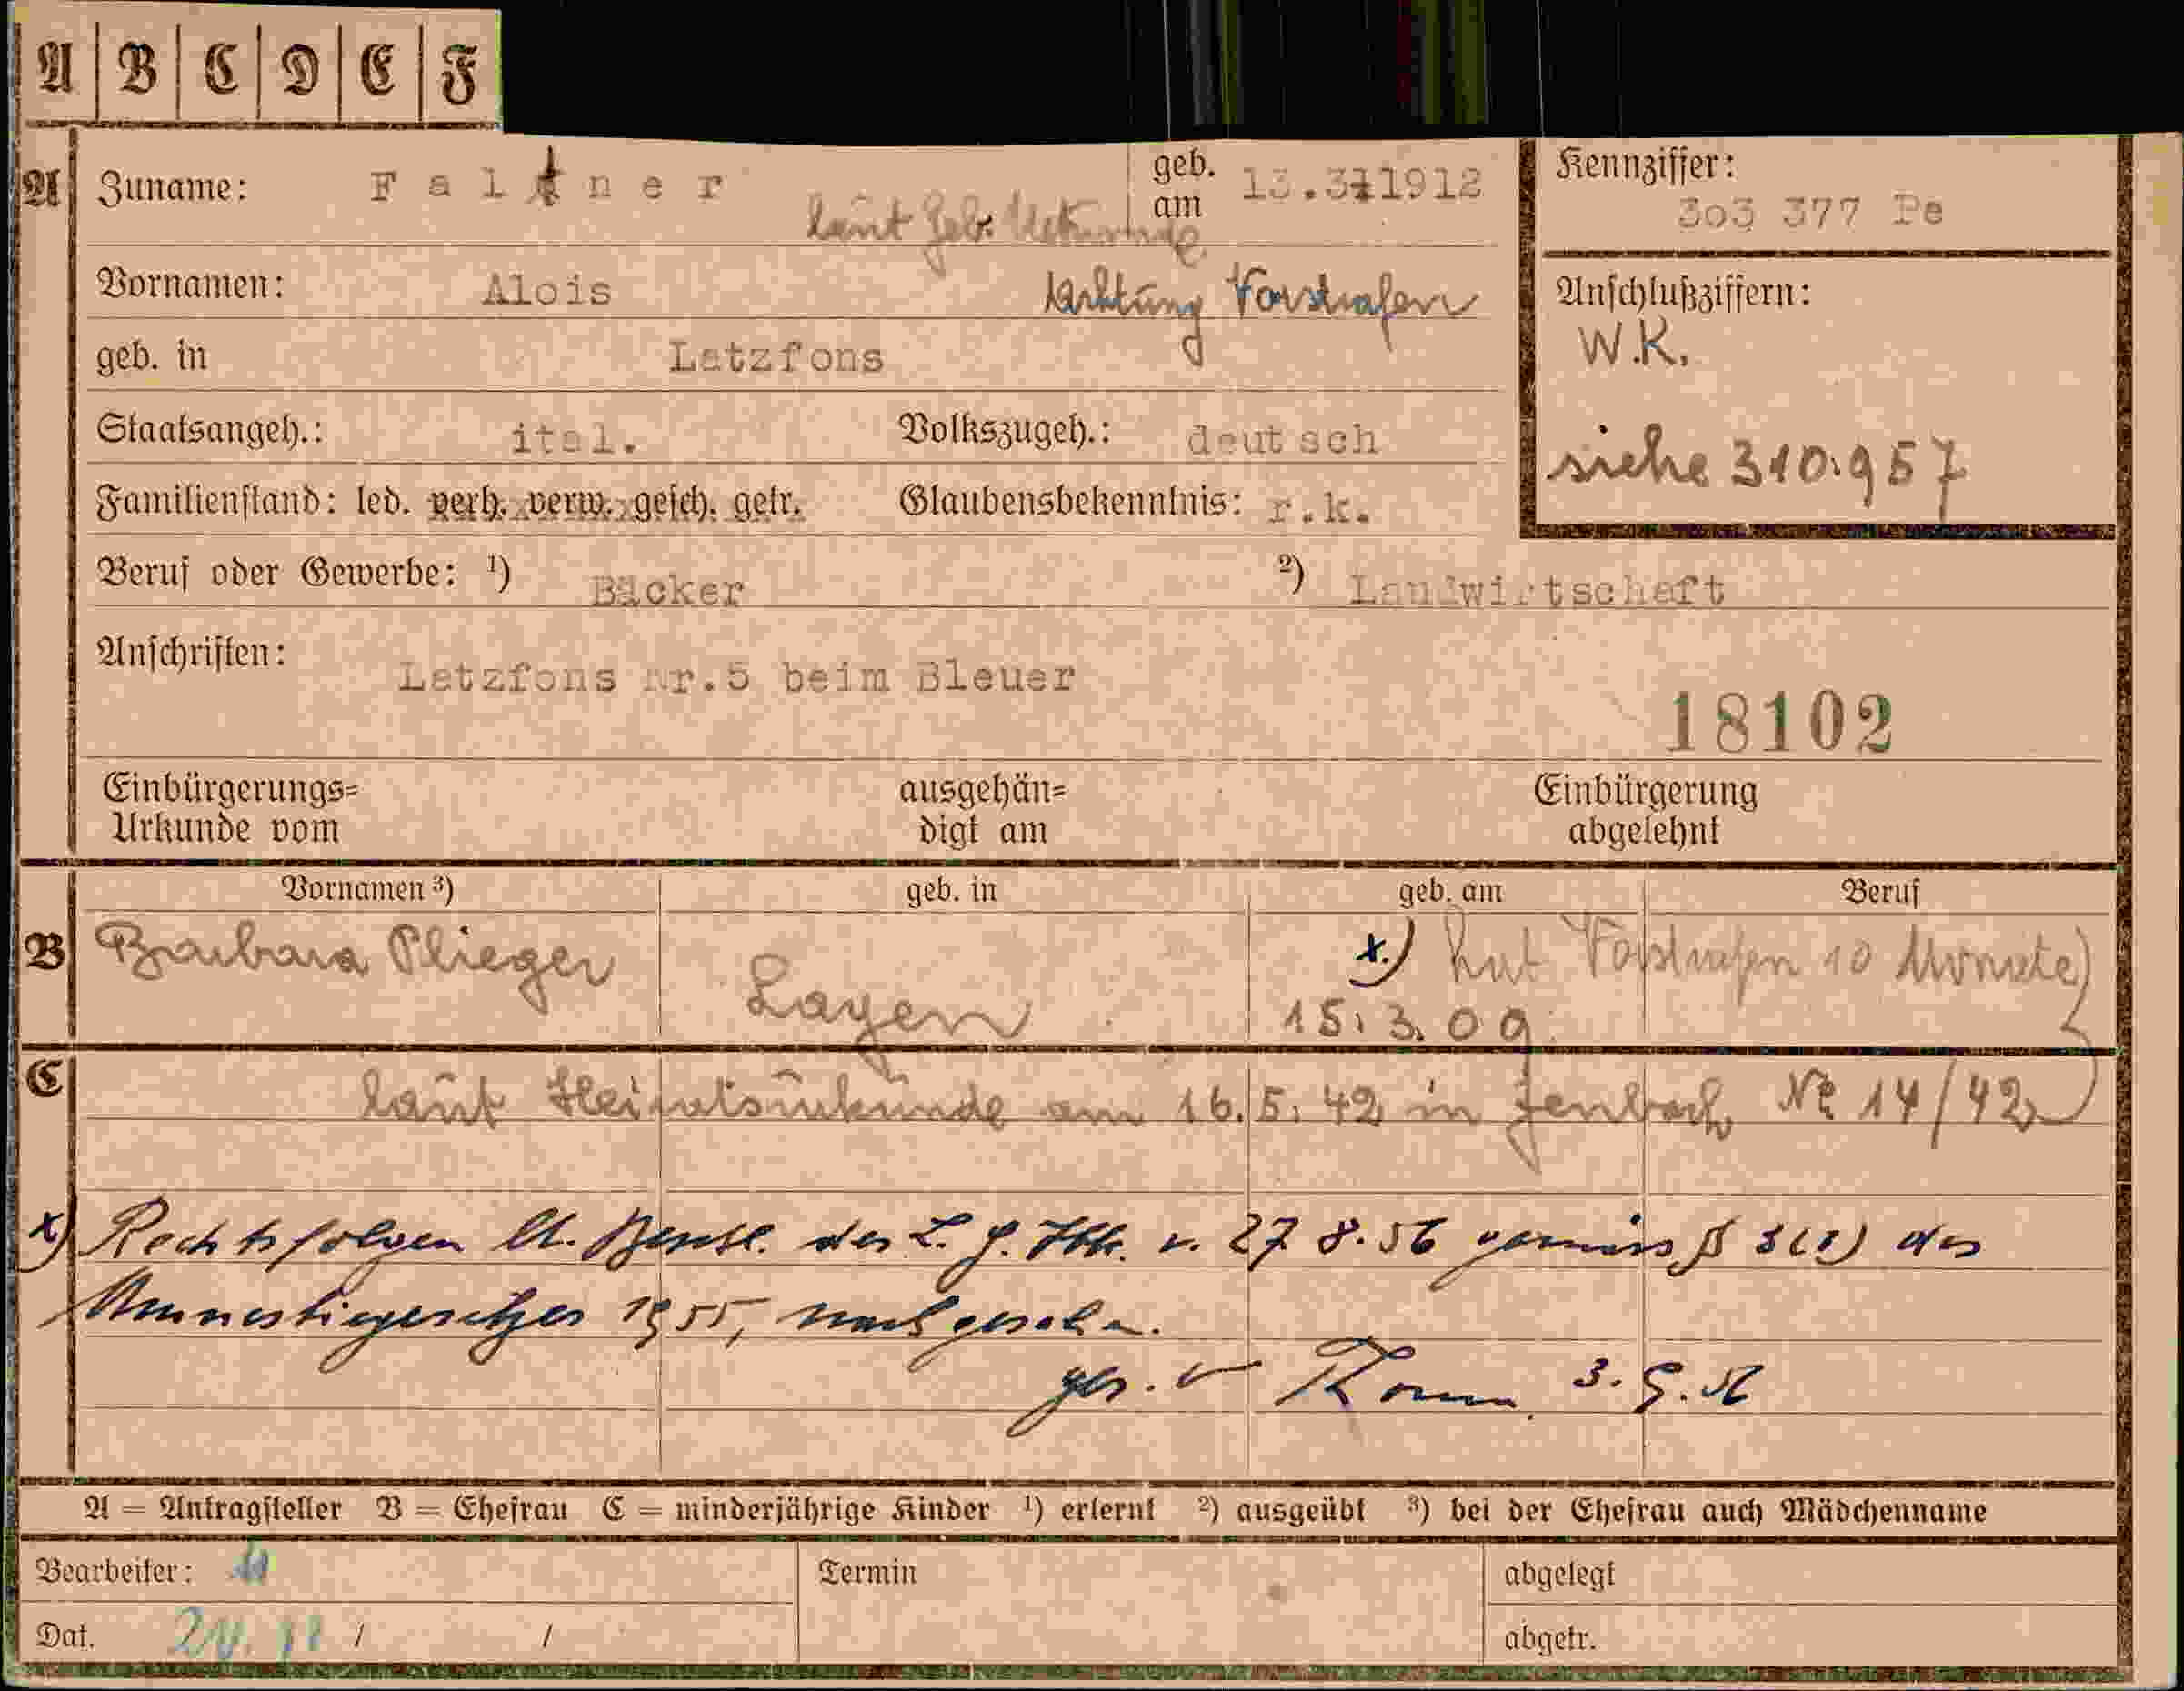 A B C D E F
A Zuname: Faltner geb. am 13.3.1912
laut Geb. Urkunde
Kennziffer:
303 377 Pe
Vornamen: Alois Achtung Vorstrafen
Anschlußziffern:
W.K.
geb. in Latzfons
Staatsangeh.: ital. Volkszugeh.: deutsch
siehe 310.957
Familienstand: led. verh. verw. gesch. getr. Glaubensbekenntnis: r.k.
Beruf oder Gewerbe: ¹) Bäcker ²) Landwirtschaft
Anschriften: Latzfons Nr.5 beim Bleuer
18102
Einbürgerungs=
Urkunde vom
ausgehän=
digt am
Einbürgerung
abgelehnt
Vornamen ³) geb. in geb. am Beruf
B Barbara Plieger Layen 15.3.09
x.) hat Vorstrafen 10 Monate
C
laut Heiratsurkunde am 16.5.42 in Jenbach No 14/42
x) Rechtsfolgen lt. Beschl. des L. G. Ibk. v. 27.8.56 gemäss § 3(1) des
Amnestiegesetzes 1955, nachgesehen.
3.9.56
A = Antragsteller B = Ehefrau C = minderjährige Kinder ¹) erlernt ²) ausgeübt ³) bei der Ehefrau auch Mädchenname
Bearbeiter: Termin abgelegt
Dat. / / abgetr.